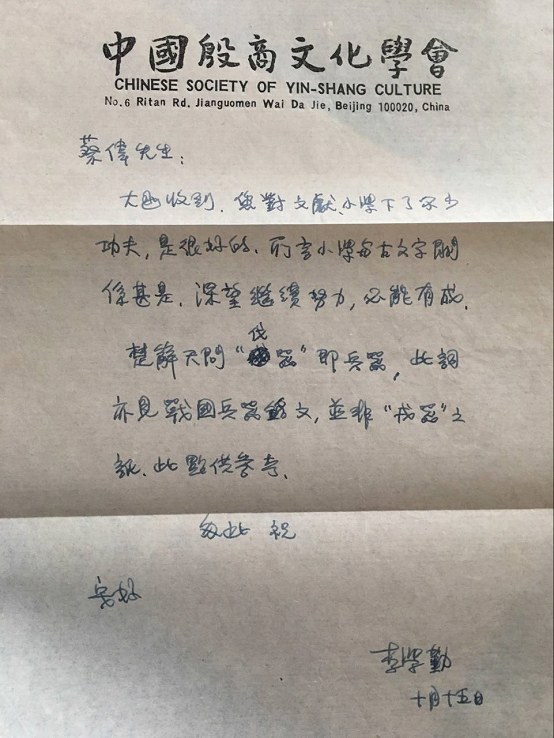 中國殷商文化學會
CHINESE SOCIETY OF YIN-SHANG CULTURE
No.6 Ritan Rd. Jianguomen Wai Da Jie, Beijing 100020, China
蔡偉先生:
大函收到.您對文獻、小學下了不少
功夫,是很好的、所言小學與古文字關
係甚是.深望繼續努力,必能有成.
楚辭天問“伐器”即兵器,此詞
亦見戰國兵器銘文,並非“戎器”之
訛.此點供參考.
匆此 祝
安好
李學勤
十月十五日